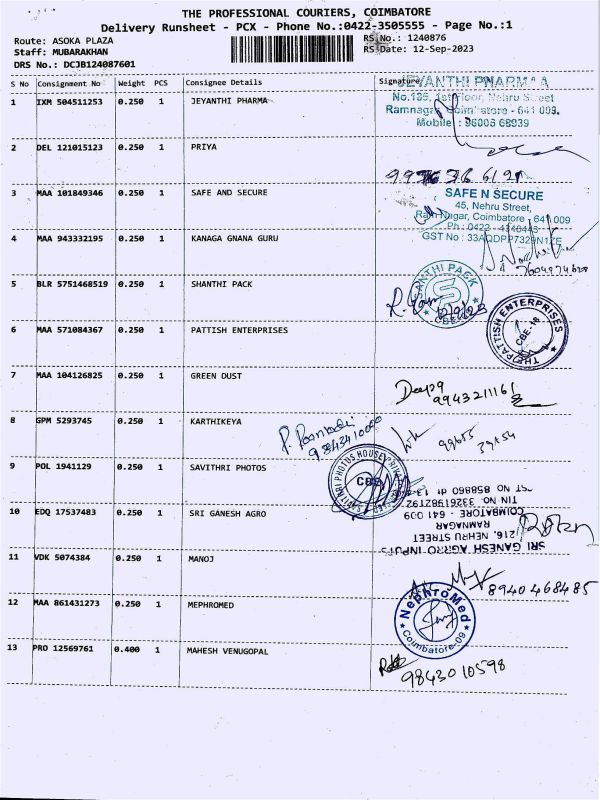 THE PROFESSIONAL COURIERS, COIMBATORE
Delivery Runsheet - PCX - Phone No.:0422-3505555 - Page No.:1
Route: ASOKA PLAZA
RS No.: 1240876
Staff: MUBARAKHAN
RS Date: 12-Sep-2023
DRS No.: DCJB124087601
S No Consignment No Weight PCS Consignee Details Signature
JEYANTHI PHARMA
1 IXM 504511253 0.250 1 JEYANTHI PHARMA
No.195, 1st Floor, Nehru Street
Ramnagar, Coimbatore - 641 009.
Mobile : 96006 68939
2 DEL 121015123 0.250 1 PRIYA
3 MAA 101849346 0.250 1 SAFE AND SECURE
SAFE N SECURE
45, Nehru Street,
Ram Nagar, Coimbatore - 641 009
Ph : 0422 - 4346443
4 MAA 943332195 0.250 1 KANAGA GNANA GURU
GST No : 33
7604974628
5 BLR 5751468519 0.250 1 SHANTHI PACK
SHANTHI PACK
S
CBE
12/9/23
6 MAA 571084367 0.250 1 PATTISH ENTERPRISES
THE PATTISH ENTERPRISES
CBE-18
7 MAA 104126825 0.250 1 GREEN DUST
Deepa
9943211161
8 GPM 5293745 0.250 1 KARTHIKEYA
99655 39454
9 POL 1941129 0.250 1 SAVITHRI PHOTOS
SAVITHRI PHOTOS HOUSE PRIVATE LIMITED
CBE
10 EDQ 17537483 0.250 1 SRI GANESH AGRO
SRI GANESH AGRRO INPUTS
216, NEHRU STREET
RAMNAGAR
COIMBATORE - 641 009
TIN NO 33261982192
11 VDK 5074384 0.250 1 MANOJ
8940468485
12 MAA 861431273 0.250 1 MEPHROMED
NephroMed
Coimbatore-09
13 PRO 12569761 0.400 1 MAHESH VENUGOPAL
9843010598